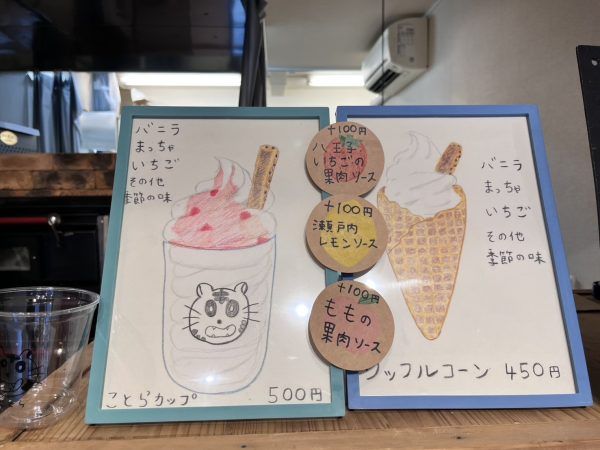 バニラ
まっちゃ
いちご
その他
季節の味
ことらカップ
500円
+100円
八王子
いちごの
果肉ソース
+100円
瀬戸内
レモンソース
+100円
ももの
果肉ソース
バニラ
まっちゃ
いちご
その他
季節の味
ワッフルコーン 450円